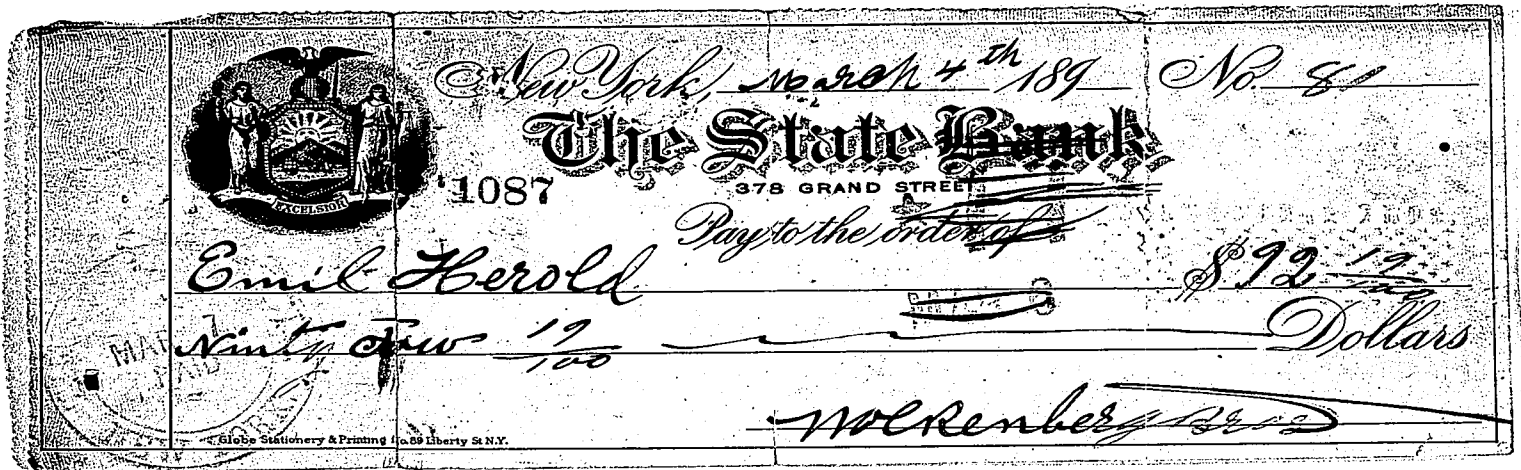 New York, March 4th 189 No. 81
The State Bank
1087
378 GRAND STREET
EXCELSIOR
Pay to the order of
Emil Herold $92 19/100
Ninty Two 19/100 Dollars
Wolkenberg Bros
Globe Stationery & Printing Co. 89 Liberty St N.Y.